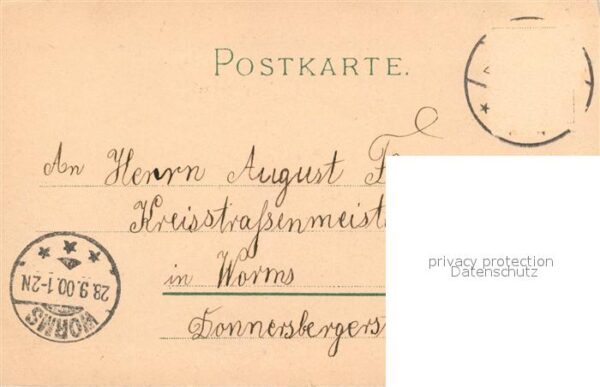 POSTKARTE.
An Herrn August
Kreisstraßenmeist
in Worms
Donnersbergers
privacy protection
Datenschutz
28.9.00.1-2N
WORMS